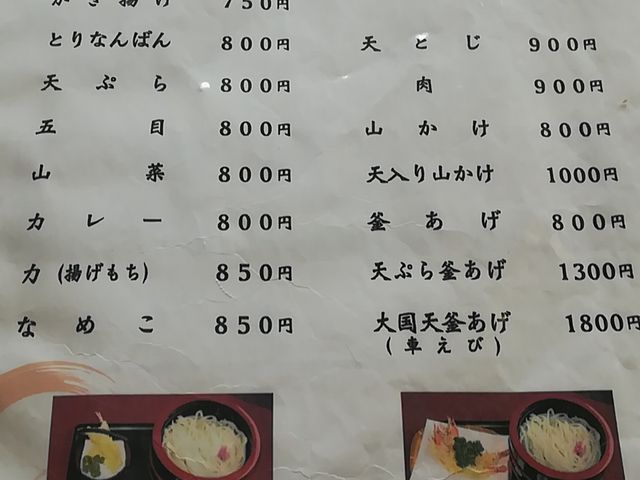 かき揚げ 750円
とりなんばん 800円
天ぷら 800円
五目 800円
山菜 800円
カレー 800円
力(揚げもち) 850円
なめこ 850円
天とじ 900円
肉 900円
山かけ 800円
天入り山かけ 1000円
釜あげ 800円
天ぷら釜あげ 1300円
大国天釜あげ 1800円
(車えび)